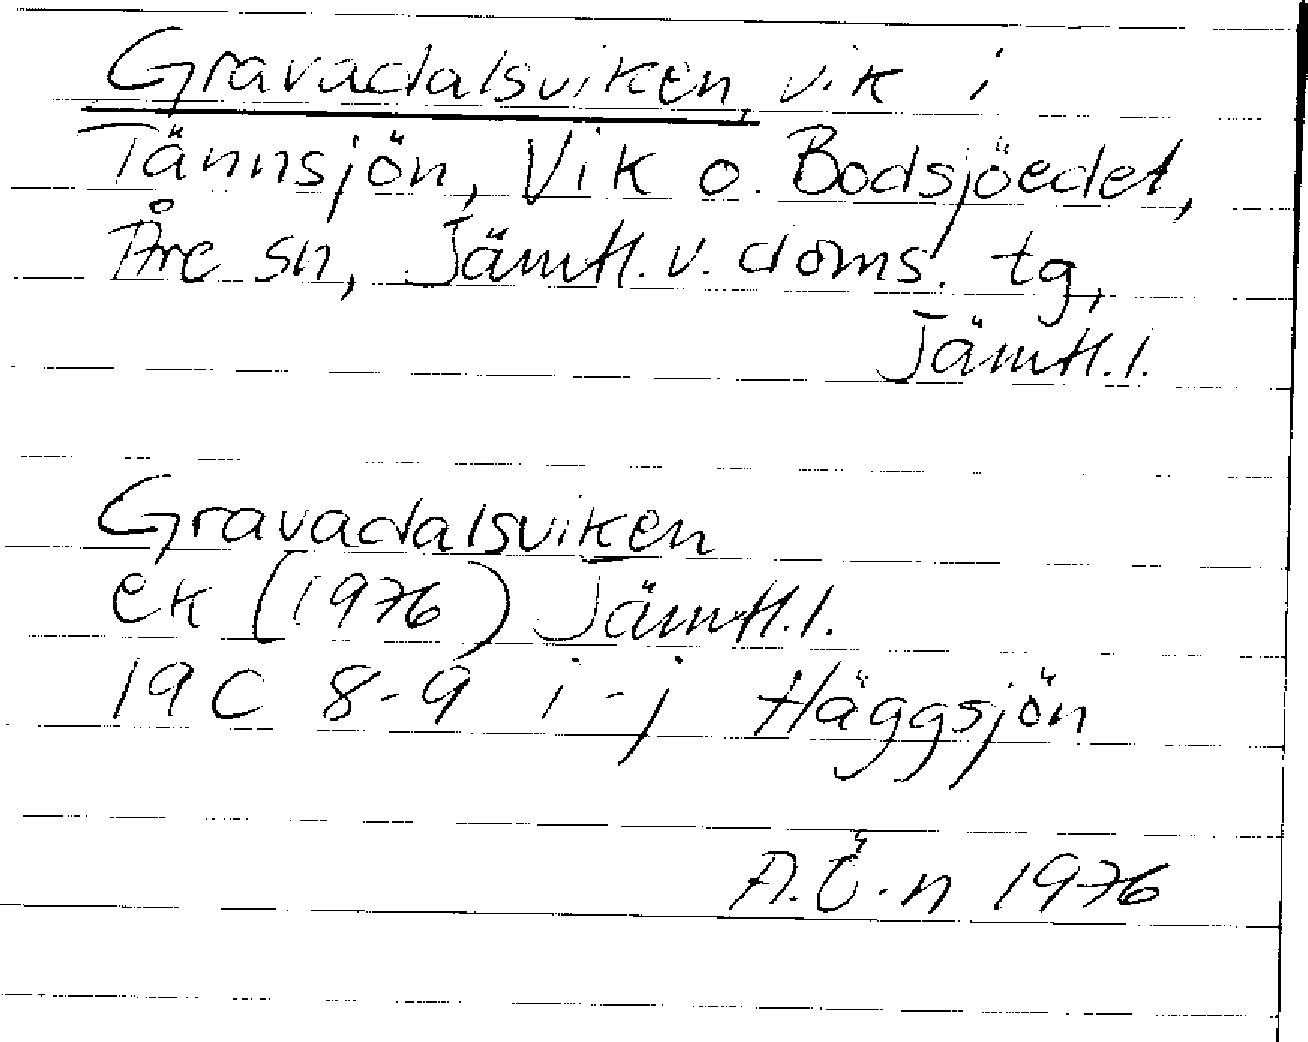 Gravadalsviken, vik i
Tännsjön, Vik o. Bodsjöedet,
Åre sn, Jämtl. v. doms. tg,
Jämtl. l.
Gravadalsviken
ek (1976) Jämtl. l.
19C 8-9 i-j Häggsjön
A.Ö-n 1976